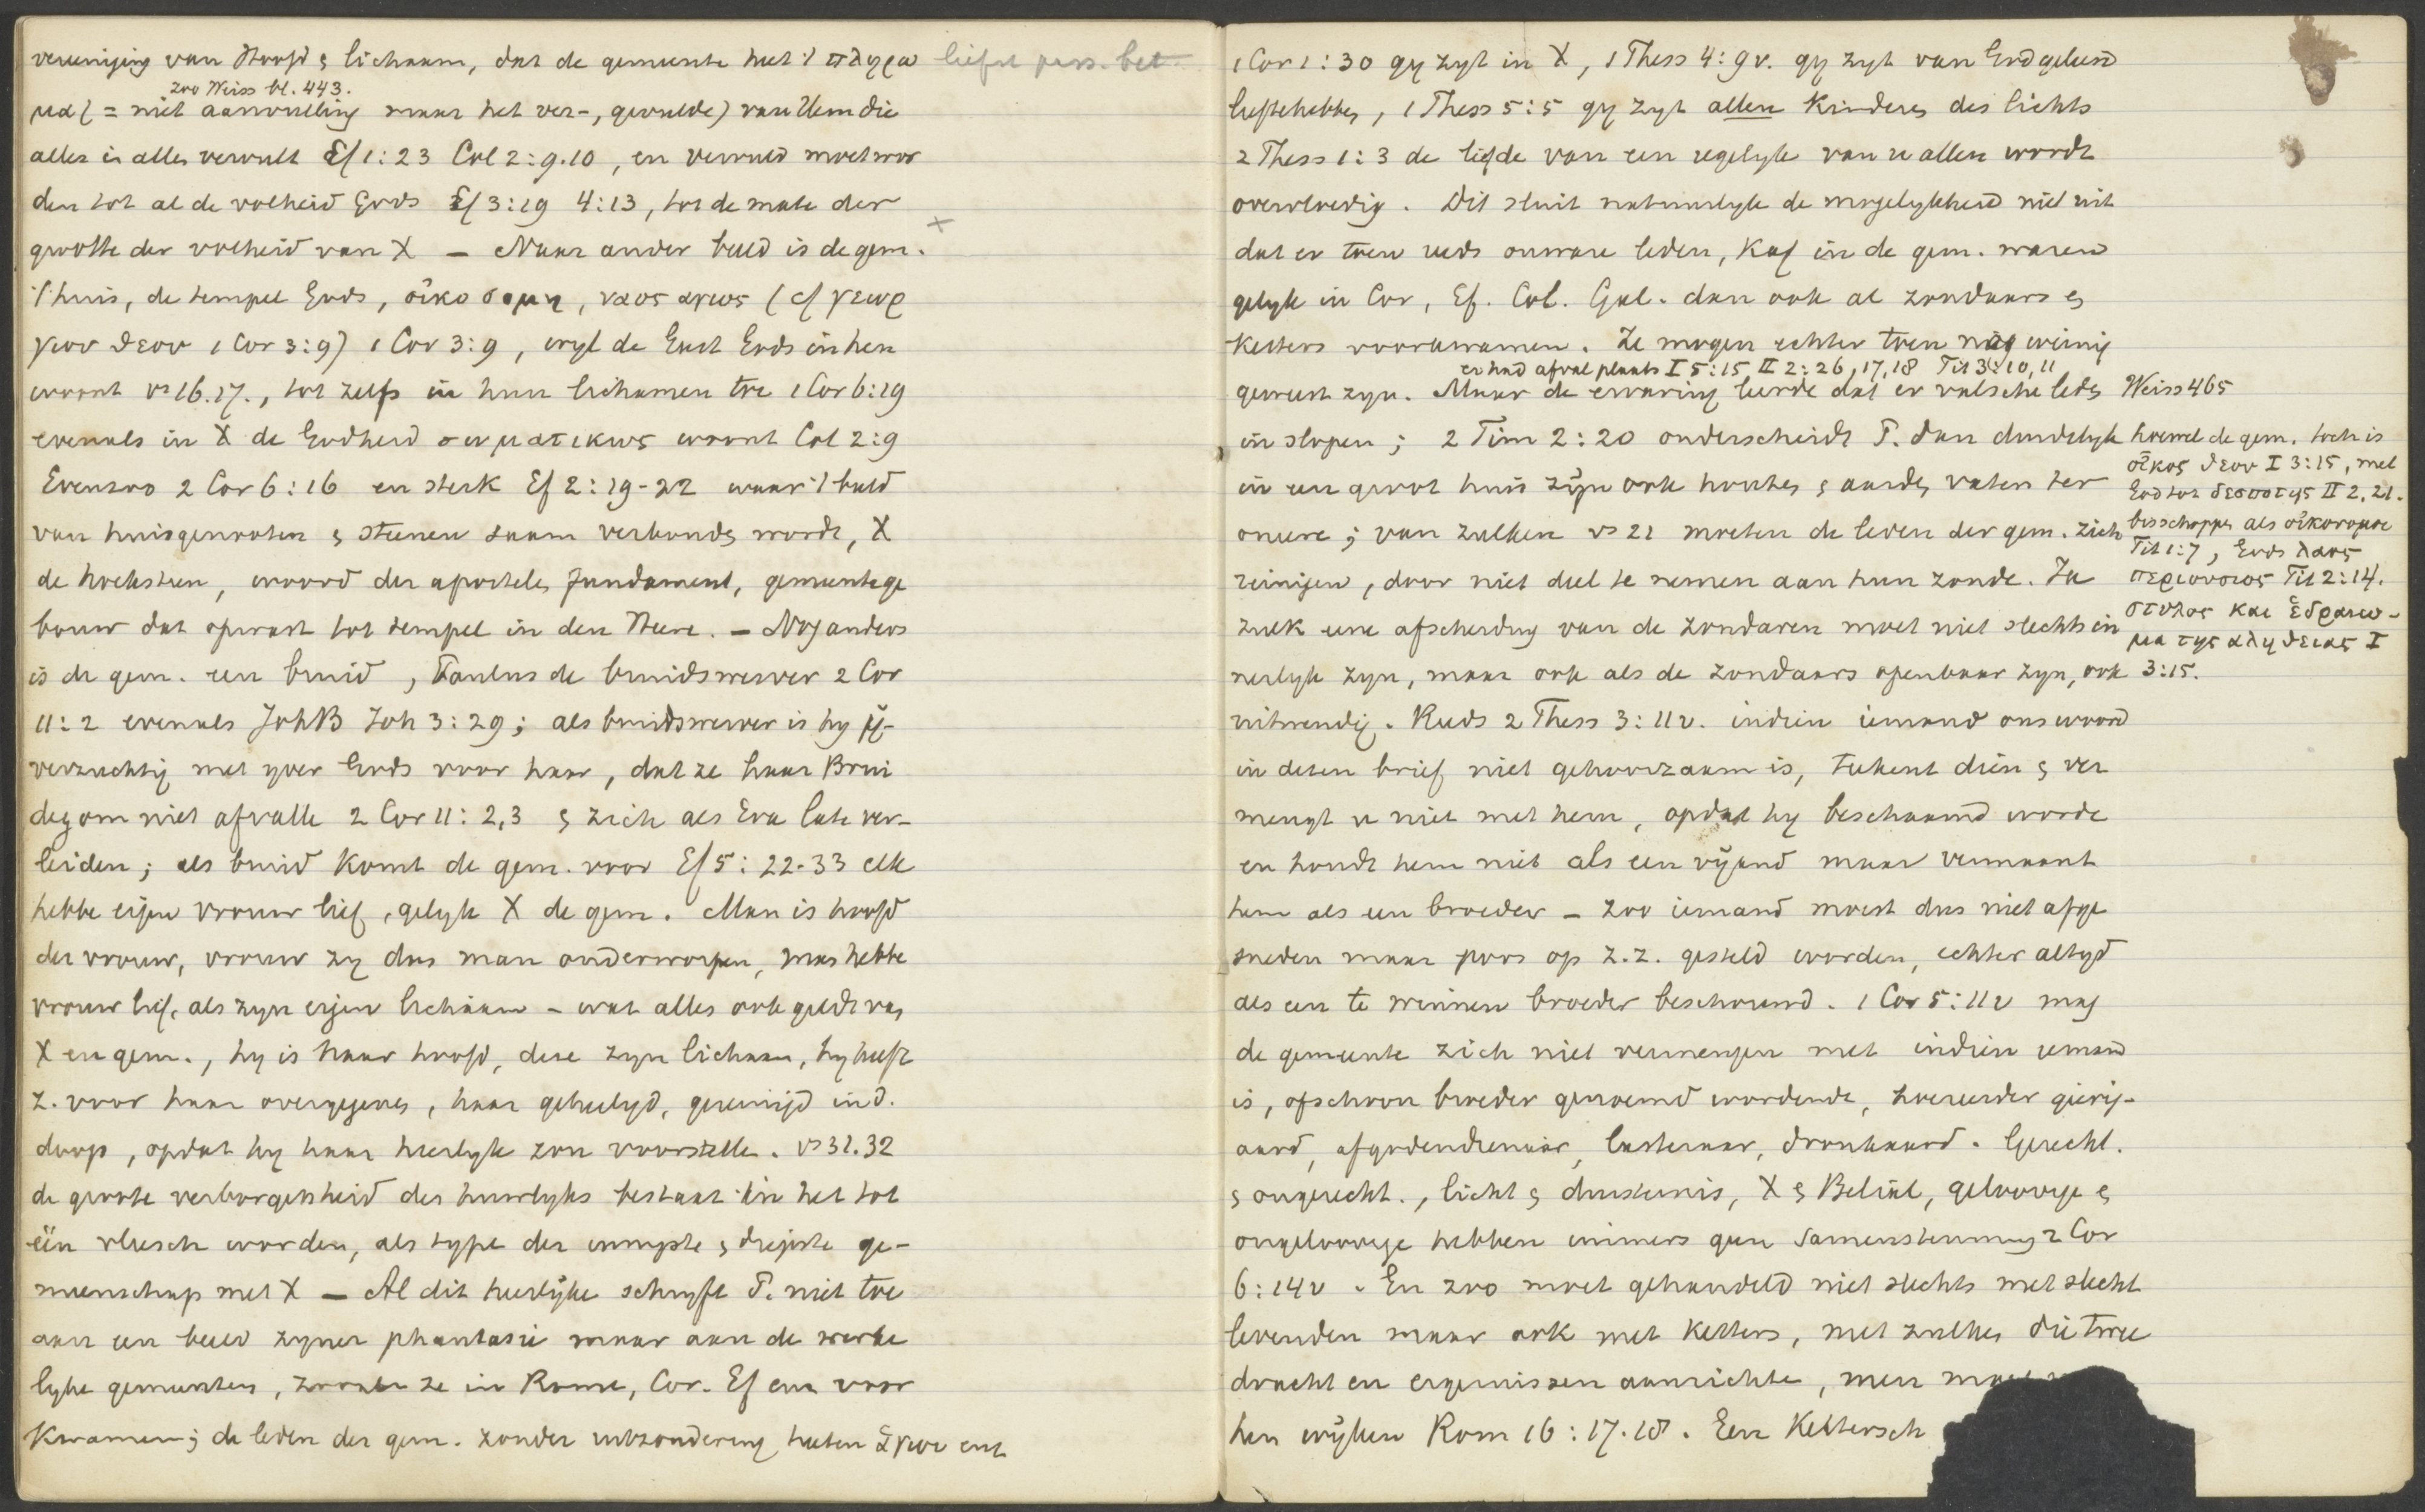 vereeniging van Hoofd & lichaam, dat de gemeente heet 't πληρω liefst pass. bet.
zoo Weiss bl. 443.
μα (= niet aanvulling maar het ver-, gevulde) van Hem die
alles in allen vervult Ef 1:23 Col 2:9.10, en vervuld moet wor
den tot al de volheid Gods Ef 3:19 4:13, tot de mate der
grootte der volheid van X — Naar ander beeld is de gem.
't huis, de tempel Gods, οἰκοδομη, ναος αγιος (cf γεωρ
γιον θεου 1 Cor 3:9) 1 Cor 3:9, wyl de Geest Gods in hen
woont vs 16.17., tot zelfs in hun lichamen toe 1 Cor 6:19
evenals in X de Godheid σωματικως woont Col 2:9
Evenzoo 2 Cor 6:16 en sterk Ef 2:19-22 waar 't beeld
van huisgenooten & steenen saam verbonden wordt, X
de hoeksteen, woord der apostelen fundament, gemeente ge
bouw dat opwast tot tempel in den Heere. — Nog anders
is de gem. een bruid, Paulus de bruidswerver 2 Cor
11:2 evenals JohB Joh 3:29; als bruidswerver is hy ij-
verzuchtig met yver Gods voor haar, dat ze haar Brui
degom niet afvalle 2 Cor 11:2,3 & zich als Eva late ver-
leiden; als bruid komt de gem. voor Ef 5:22-33 elk
hebbe eigen vrouw lief, gelyk X de gem. Man is hoofd
der vrouw, vrouw zy dus man onderworpen, man hebbe
vrouw lief, als zyn eigen lichaam - wat alles ook geldt van
X en gem., hy is haar hoofd, deze zyn lichaam, hy heeft
z. voor haar overgegeven, haar geheiligd, gereinigd in d.
doop, opdat hy haar heerlyk zou voorstellen. vs 31.32
de groote verborgenheid des huwlyks bestaat in het tot
één vleesch worden, als type der innigste & diepste ge-
meenschap met X — Al dit heerlijke schryft P. niet toe
aan een beeld zyner phantasie maar aan de werke
lyke gemeenten, zooals ze in Rome, Cor. Ef enz voor
kwamen; de leden der gem. zonder uitzondering heeten ἁγιοι enz
1 Cor 1:30 gy zyt in X, 1 Thess 4:9v. gy zyt van God geleerd
liefte hebben, 1 Thess 5:5 gy zyt allen kinderen des lichts
2 Thess 1:3 de liefde van een iegelyk van u allen wordt
overvloedig. Dit sluit natuurlyk de mogelykheid niet uit
dat er toen reeds onware leden, kaf in de gem. waren
gelyk in Cor, Ef. Col. Gal. dan ook al zondaars &
ketters voorkwamen. Ze mogen echter toen nog weinig
er had afval plaats I 5:15, II 2:26, 17,18 Tit 3:10,11
geweest zyn. Maar de ervaring leerde dat er valsche leden
in slopen; 2 Tim 2:20 onderscheidt P. dan duidelyk
in een groot huis zijn ook houten & aarden vaten ter
oneere; van zulken vs 21 moeten de leden der gem. zich
reinigen, door niet deel te nemen aan hun zonde. Ja
zulk eene afscheiding van de zondaren moet niet slechts in
nerlyk zyn, maar ook als de zondaars openbaar zyn, ook
uitwendig. Reeds 2 Thess 3:11v. indien iemand ons woord
in dezen brief niet gehoorzaam is, teekent dien & ver
mengt u niet met hem, opdat hy beschaamd worde
en houdt hem niet als een vijand maar vermaant
hem als een broeder — zoo iemand moest dus niet afge
sneden maar poos op z.z. gesteld worden, echter altyd
als een te winnen broeder beschouwd. 1 Cor 5:11v mag
de gemeente zich niet vermengen met indien iemand
is, ofschoon broeder genoemd wordende, hoereerder gierig-
aard, afgodendienaar, lasteraar, dronkaard. Gerecht.
& ongerecht., licht & duisternis, X & Belial, geloovige &
ongeloovige hebben immers geen samenstemming 2 Cor
6:14v. En zoo moet gehandeld niet slechts met slecht
levenden maar ook met ketters, met zulken die twee
dracht en ergernissen aanrichten, men moet
hen wijken Rom 16:17.18. Een kettersch
Weiss 465
hoewel de gem. toch is
οἶκος θεου I 3:15, met
God tot δεσποτης II 2, 21.
bisschoppen als οἰκονομοι
Tit 1:7, Gods λαος
περιουσιος Tit 2:14.
στυλος και ἑδραιω-
μα της αληθειας I
3:15.